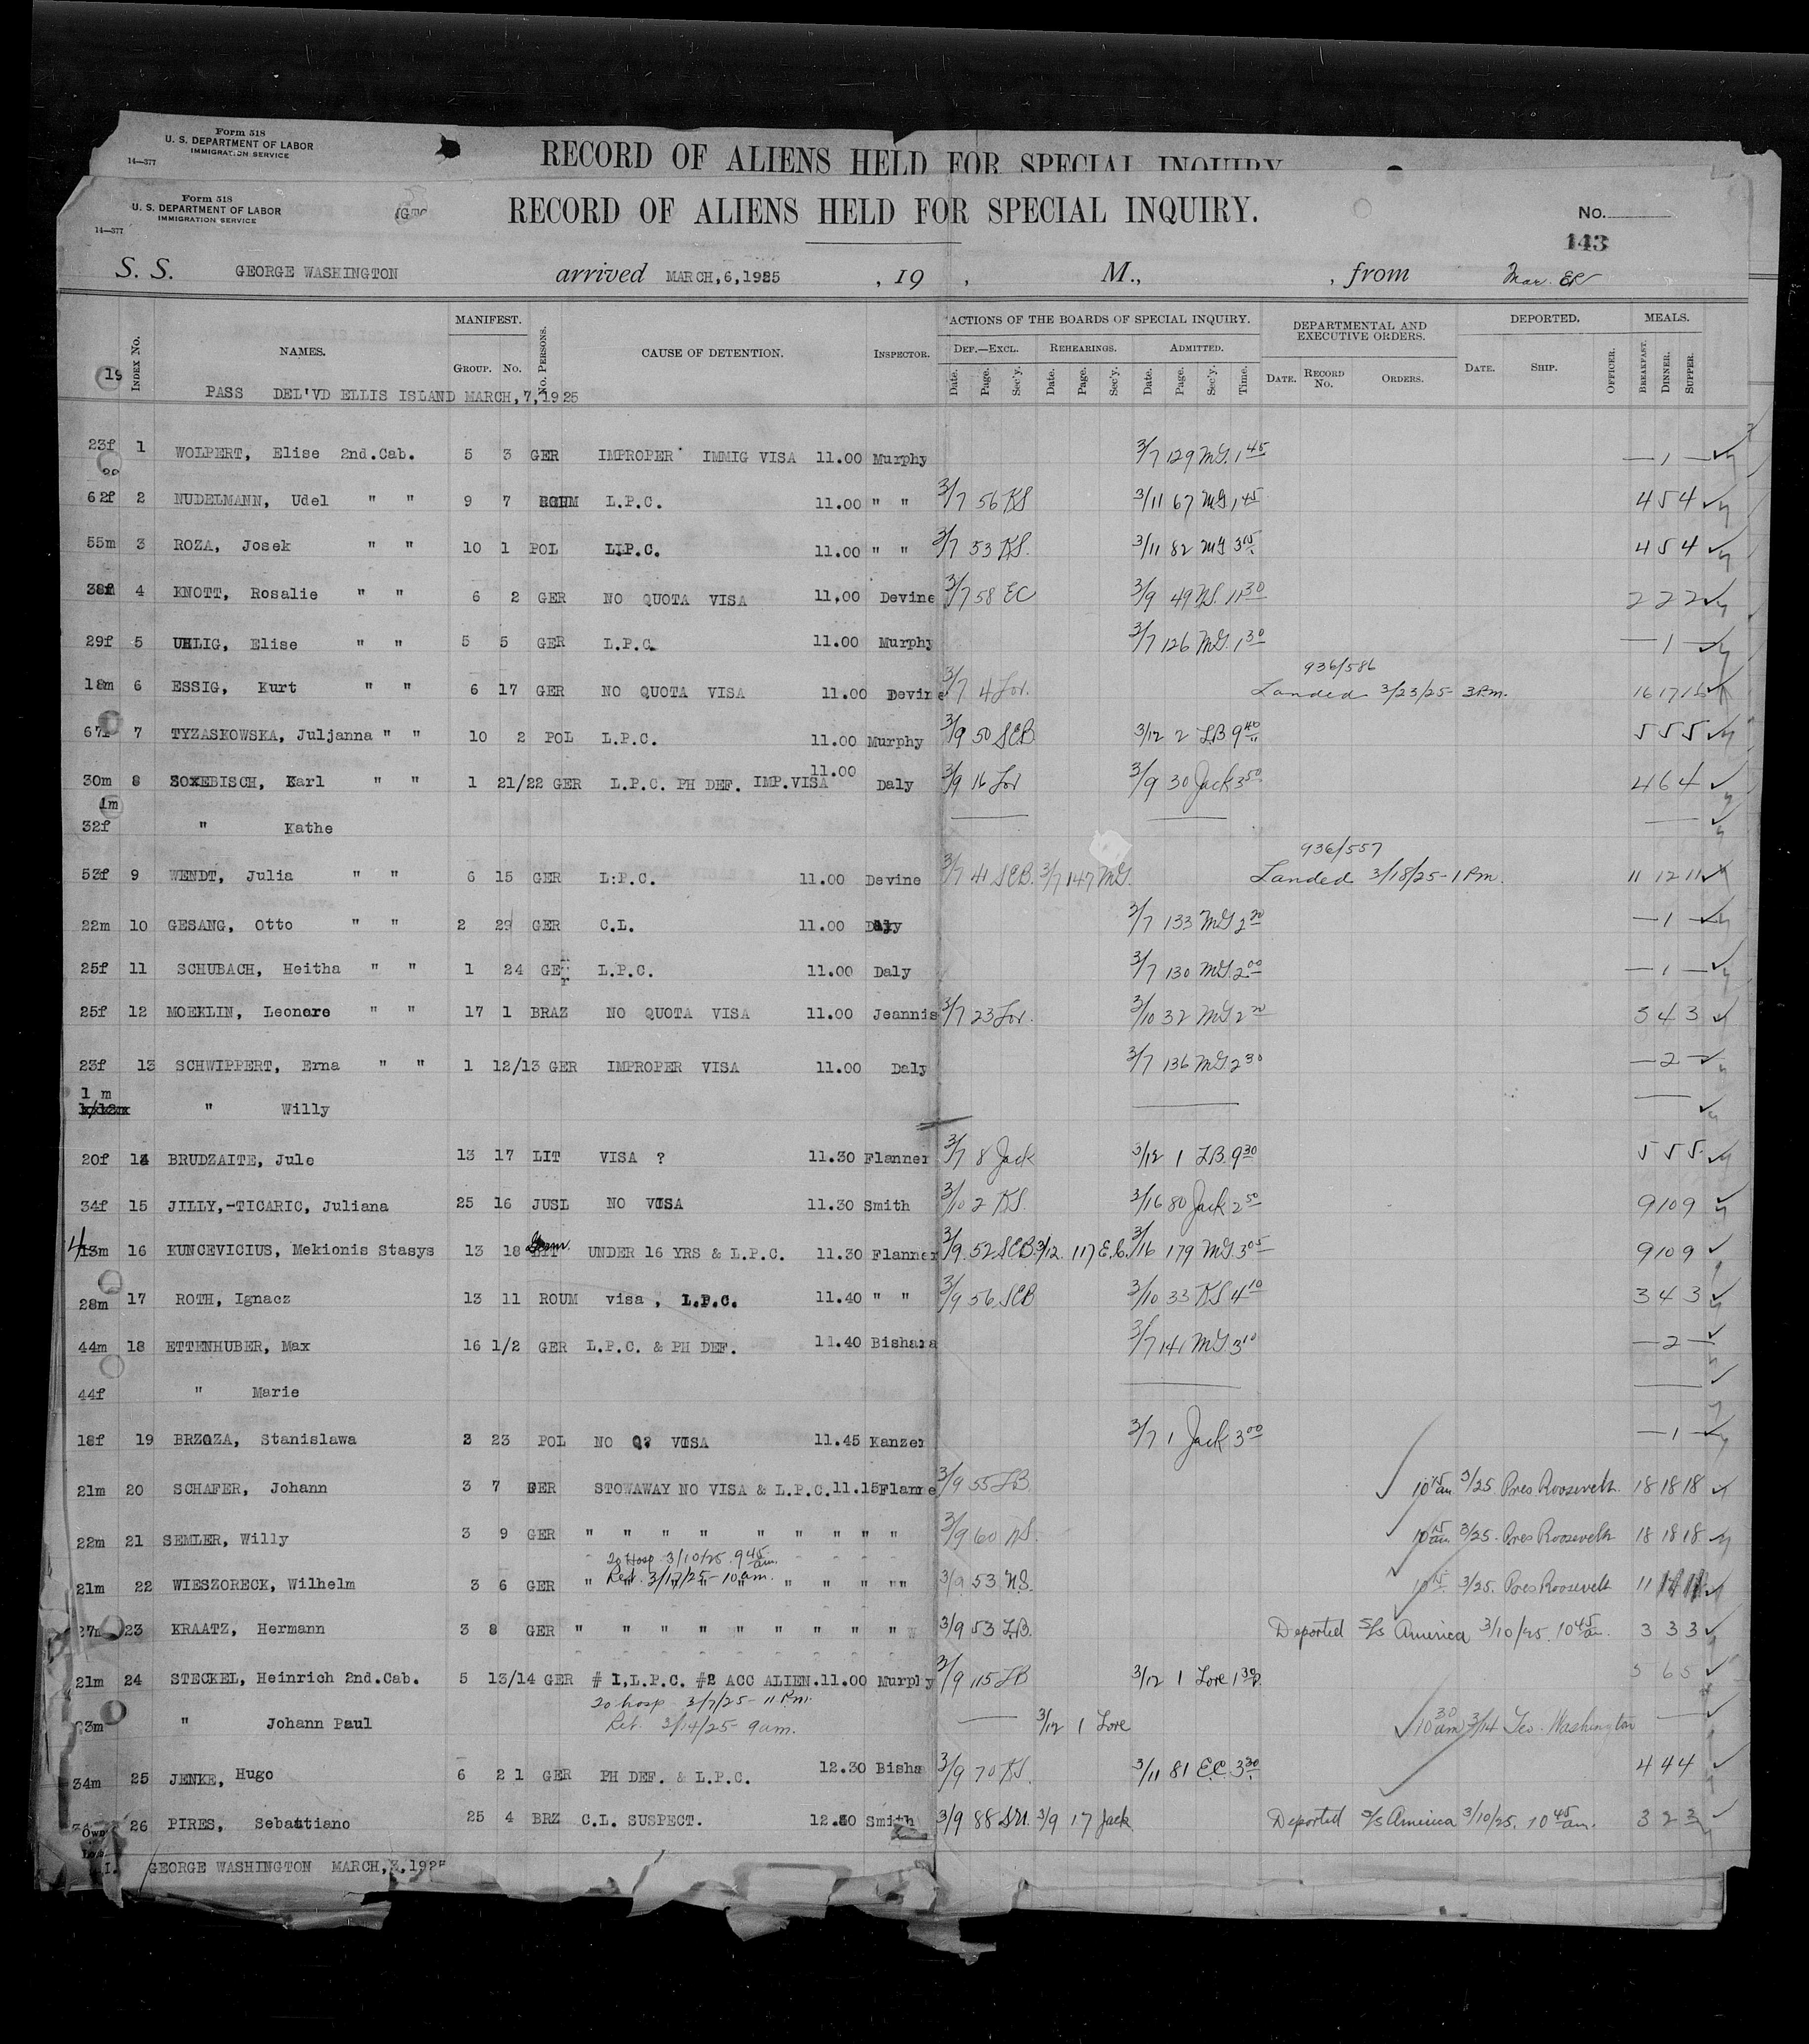 Form 518
U. S. DEPARTMENT OF LABOR
IMMIGRATION SERVICE
14—377
RECORD OF ALIENS HELD FOR SPECIAL INQUIRY
Form 518
U. S. DEPARTMENT OF LABOR
IMMIGRATION SERVICE
14—377
RECORD OF ALIENS HELD FOR SPECIAL INQUIRY.
No.
143
S. S. GEORGE WASHINGTON arrived MARCH,6,1925 , 19 , M., , from Mar.
Index No. NAMES. MANIFEST. GROUP. No. No. PERSONS. CAUSE OF DETENTION. INSPECTOR. ACTIONS OF THE BOARDS OF SPECIAL INQUIRY. DEF.—EXCL. Date. Page. Sec'y. REHEARINGS. Date. Page. Sec'y. ADMITTED. Date. Page. Sec'y. Time. DEPARTMENTAL AND EXECUTIVE ORDERS. DATE. RECORD No. ORDERS. DEPORTED. DATE. SHIP. OFFICER. MEALS. BREAKFAST. DINNER. SUPPER.
19
PASS DEL'VD ELLIS ISLAND MARCH,7,1925
23f 1 WOLPERT, Elise 2nd.Cab. 5 3 GER IMPROPER IMMIG VISA 11.00 Murphy 3/7 129 MG. 1 45 — 1 —
62f 2 NUDELMANN, Udel " " 9 7 L.P.C. 11.00 " " 3/7 56 KS 3/11 67 MG 1 45 4 5 4
55m 3 ROZA, Josek " " 10 1 POL L.P.C. 11.00 " " 3/7 53 KS. 3/11 82 MG 3 15 4 5 4
38f 4 KNOTT, Rosalie " " 6 2 GER NO QUOTA VISA 11.00 Devine 3/7 58 EC 3/9 49 NS. 11 30 2 2 2
29f 5 UHLIG, Elise " " 5 5 GER L.P.C. 11.00 Murphy 3/7 126 MG. 1 30 — 1 —
936/586
18m 6 ESSIG, Kurt " " 6 17 GER NO QUOTA VISA 11.00 Devine 3/7 4 Lor. Landed 3/23/25 - 3 P.m. 16 17 16
67f 7 TYZASKOWSKA, Juljanna " " 10 2 POL L.P.C. 11.00 Murphy 3/9 50 SCB 3/12 2 LB 9 40 5 5 5
30m 8 Karl " " 1 21/22 GER L.P.C. PH DEF. IMP.VISA 11.00 Daly 3/9 16 Lor 3/9 30 Jack 3 50 4 6 4
1m
32f " Kathe
936/557
53f 9 WENDT, Julia " " 6 15 GER L.P.C. 11.00 Devine 3/7 41 SCB. 3/7 147 MG. Landed 3/18/25 - 1 P.m. 11 12 11
22m 10 GESANG, Otto " " 2 29 GER C.L. 11.00 Daly 3/7 133 MG 2 20 — 1 —
25f 11 SCHUBACH, Heitha " " 1 24 GER L.P.C. 11.00 Daly 3/7 130 MG. 2 00 — 1 —
25f 12 MOEKLIN, Leonore " " 17 1 BRAZ NO QUOTA VISA 11.00 Jeannis 3/7 23 Lor. 3/10 32 MG 2 20 3 4 3
23f 13 SCHWIPPERT, Erna " " 1 12/13 GER IMPROPER VISA 11.00 Daly 3/7 136 MG 2 30 — 2 —
1 m
" Willy
20f 14 BRUDZAITE, Jule 13 17 LIT VISA ? 11.30 Flanner 3/7 8 Jack 3/12 1 LB. 9 30 5 5 5
34f 15 JILLY,-TICARIC, Juliana 25 16 JUSL NO VISA 11.30 Smith 3/10 2 KS. 3/16 80 Jack 2 50 9 10 9
13m 16 KUNCEVICIUS, Mekionis Stasys 13 18 LIT UNDER 16 YRS & L.P.C. 11.30 Flanner 3/9 52 SCB. 3/12. 117 E.C. 3/16 179 MG. 3 05 9 10 9
28m 17 ROTH, Ignacz 13 11 ROUM visa, L.P.C. 11.40 " " 3/9 56 SCB 3/10 33 KS 4 10 3 4 3
44m 18 ETTENHUBER, Max 16 1/2 GER L.P.C. & PH DEF. 11.40 Bishara 3/7 141 MG 3 10 — 2 —
44f " Marie
18f 19 BRZOZA, Stanislawa 3 23 POL NO Q? VISA 11.45 Kanzer 3/7 1 Jack 3 00 — 1 —
21m 20 SCHAFER, Johann 3 7 GER STOWAWAY NO VISA & L.P.C. 11.15 Flanne 3/9 55 LB 10 15 am 3/25. Pres Roosevelt. 18 18 18
22m 21 SEMLER, Willy 3 9 GER " " " " " " " " " 3/9 60 NS. 10 15 am 3/25. Pres Roosevelt 18 18 18
To Hosp 3/10/25. 9 45 am.
Ret. 3/17/25 - 10 am.
21m 22 WIESZORECK, Wilhelm 3 6 GER " " " " " " " " " 3/9 53 N.S. 10 15 3/25. Pres Roosevelt 11
27m 23 KRAATZ, Hermann 3 8 GER " " " " " " " " " " 3/9 53 LB. Deported S/S America 3/10/25. 10 45 am. 3 3 3
21m 24 STECKEL, Heinrich 2nd.Cab. 5 13/14 GER # 1,L.P.C. #2 ACC ALIEN. 11.00 Murphy 3/9 115 LB 3/12 1 Lore 1 30 5 6 5
To hosp 3/7/25 - 11 P.m.
Ret. 3/14/25 - 9 am.
" Johann Paul 3/12 1 Lore 10 30 am 3/14 Geo. Washington
34m 25 JENKE, Hugo 6 21 GER PH DEF. & L.P.C. 12.30 Bisha 3/9 70 KS. 3/11 81 E.C. 3 30 4 4 4
26 PIRES, Sebattiano 25 4 BRZ C.L. SUSPECT. Smith 3/9 88 3/9 17 Jack Deported S/S America 3/10/25. 10 45 am. 3 2 3
GEORGE WASHINGTON MARCH, 1925